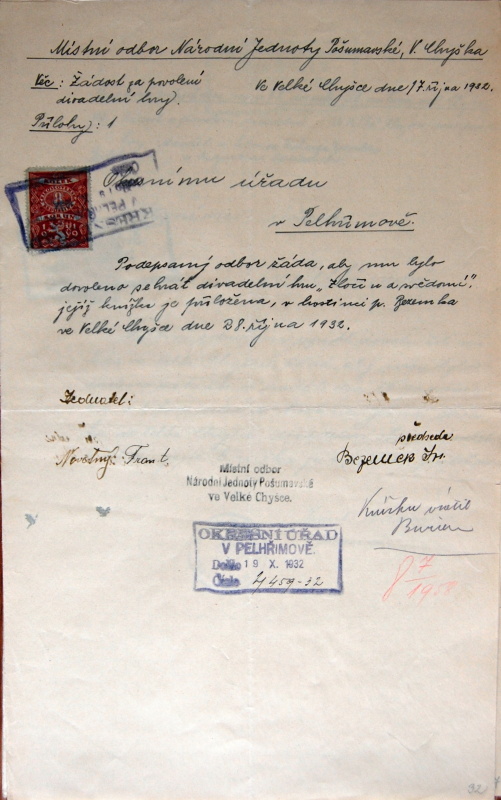 Místní odbor Národní Jednoty Pošumavské, V. Chyška
Věc: Žádost za povolení
divadelní hry.
Ve Velké Chyšce dne 17. října 1932.
Přílohy: 1
Okresnímu úřadu
v Pelhřimově.
Podepsaný odbor žádá, aby mu bylo
dovoleno sehrát divadelní hru
jejíž knížka je přiložena, v hostinci p.
ve Velké Chyšce dne 28. října 1932.
Jednatel:
předseda
Novotný Frant.
Místní odbor
Národní Jednoty Pošumavské
ve Velké Chyšce.
Knížku vrátil
OKRESNÍ ÚŘAD
V PELHŘIMOVĚ.
Došlo 19 X. 1932
Číslo
32